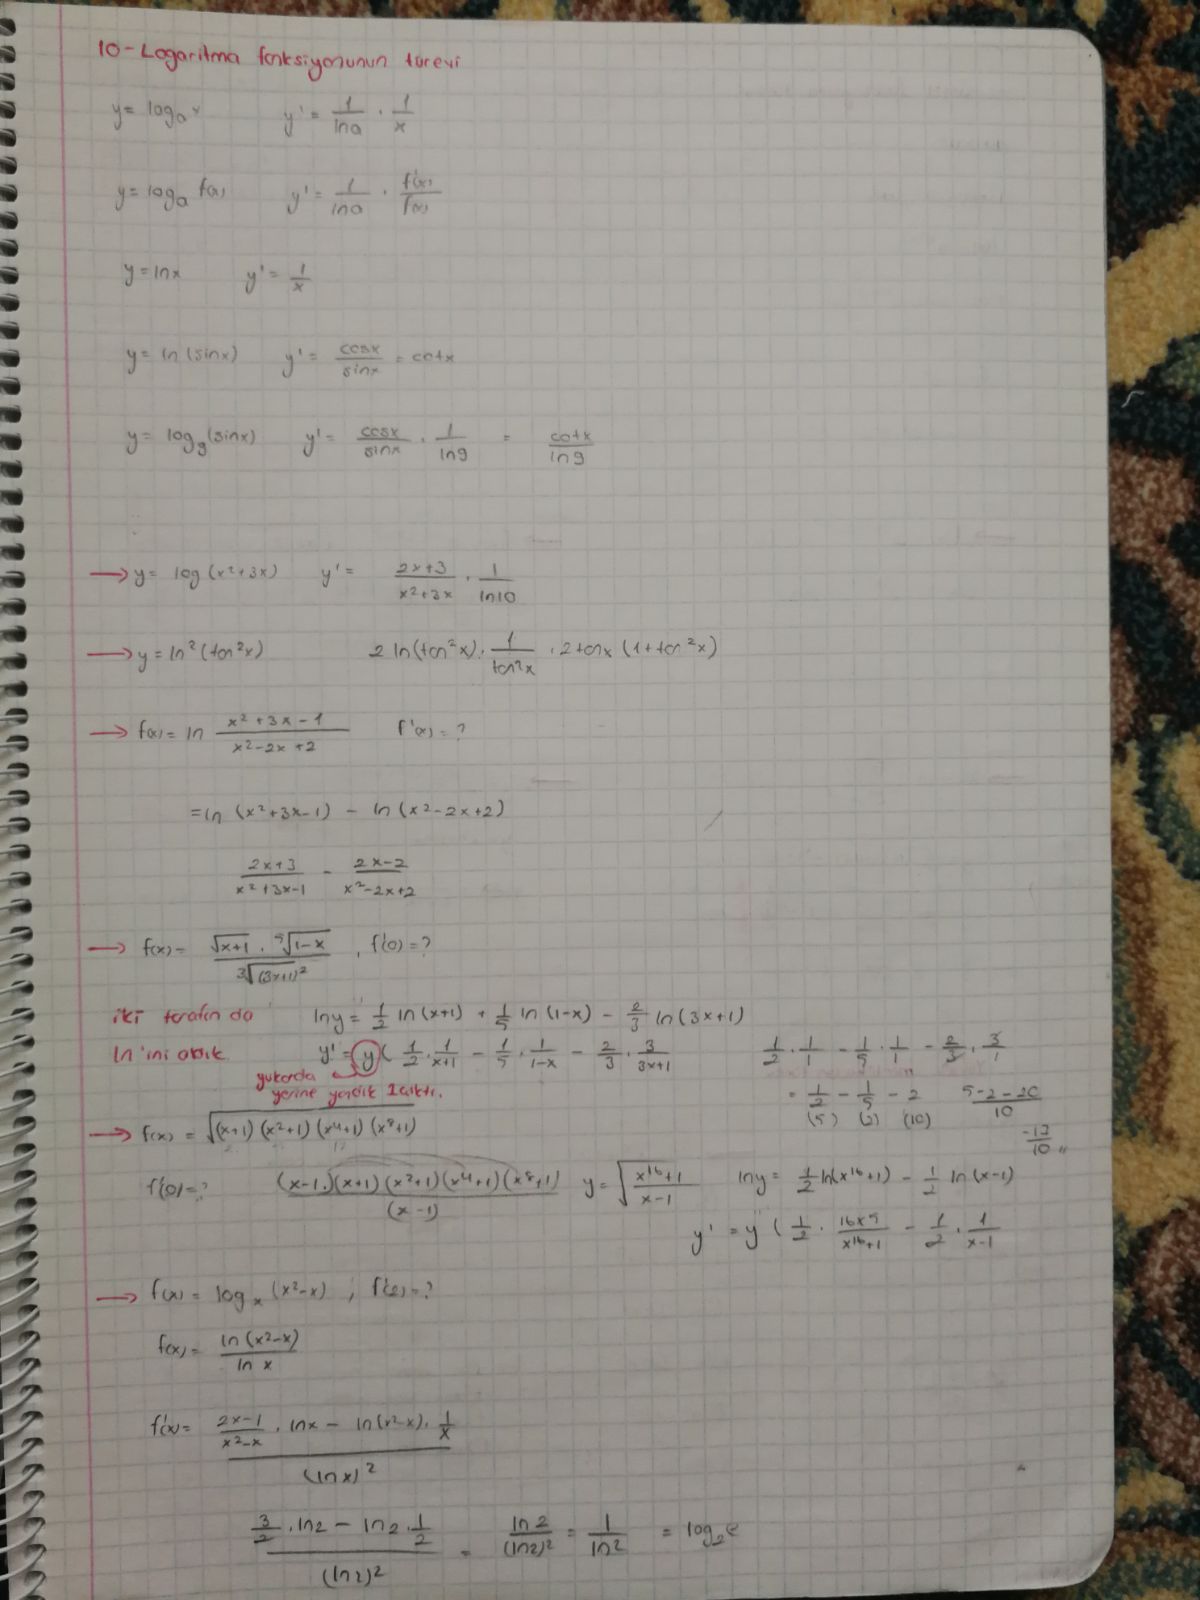 10-Logaritma fonksiyonunun türevi
y = logₐx    y' = 1/lna · 1/x
y = logₐ f(x)    y' = 1/lna · f'(x)/f(x)
y = lnx    y' = 1/x
y = ln(sinx)    y' = cosx/sinx = cotx
y = log₉(sinx)    y' = cosx/sinx · 1/ln9 = cotx/ln9
→ y = log(x²+3x)    y' = 2x+3/x²+3x · 1/ln10
→ y = ln²(tan²x)    2 ln(tan²x) · 1/tan²x · 2tanx (1+tan²x)
→ f(x) = ln x²+3x-1/x²-2x+2    f'(x) = ?
= ln (x²+3x-1) - ln (x²-2x+2)
2x+3/x²+3x-1 - 2x-2/x²-2x+2
→ f(x) = √x+1 · ⁵√1-x / ³√(3x+1)² , f'(0) = ?
iki tarafın da    lny = 1/2 ln(x+1) + 1/5 ln(1-x) - 2/3 ln(3x+1)
ln'ini aldık.    y' = y( 1/2 · 1/x+1 - 1/5 · 1/1-x - 2/3 · 3/3x+1    1/2 · 1/1 - 1/5 · 1/1 - 2/3 · 3/1
yukarda    = 1/2 - 1/5 - 2    5-2-20/10
yerine yazdık 1 çıktı.    (5) (2) (10)    -17/10 ,,
→ f(x) = √(x+1)(x²+1)(x⁴+1)(x⁸+1)
f'(0) = ?    (x-1)(x+1)(x²+1)(x⁴+1)(x⁸+1)/(x-1)    y = √x¹⁶+1/x-1    lny = 1/2 ln(x¹⁶+1) - 1/2 ln(x-1)
y' = y ( 1/2 · 16x¹⁵/x¹⁶+1 - 1/2 · 1/x-1
→ f(x) = logₓ (x²-x) , f'(2) = ?
f(x) = ln(x²-x)/ln x
f'(x) = 2x-1/x²-x · lnx - ln(x²-x) · 1/x / (lnx)²
3/2 · ln2 - ln2 · 1/2 / (ln2)² = ln2/(ln2)² = 1/ln2 = log₂e